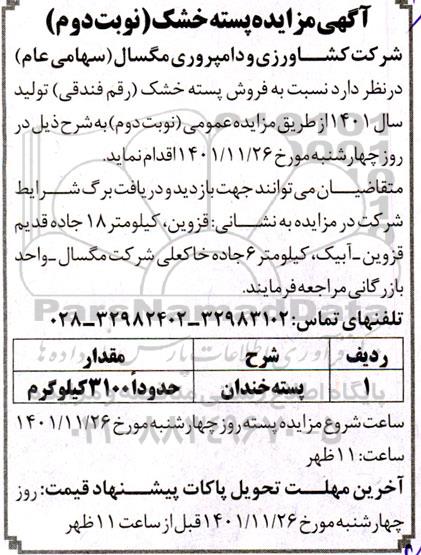 آگهی مزایده پسته خشک (نوبت دوم)
شرکت کشاورزی و دامپروری مگسال (سهامی عام)
در نظر دارد نسبت به فروش پسته خشک (رقم فندقی) تولید
سال ۱۴۰۱ از طریق مزایده عمومی (نوبت دوم) به شرح ذیل در
روز چهارشنبه مورخ ۱۴۰۱/۱۱/۲۶ اقدام نماید.
متقاضیان می توانند جهت بازدید و دریافت برگ شرایط
شرکت در مزایده به نشانی: قزوین، کیلومتر ۱۸ جاده قدیم
قزوین -آبیک، کیلومتر ۶ جاده خاکعلی شرکت مگسال -واحد
بازرگانی مراجعه فرمایند.
تلفنهای تماس: ۳۲۹۸۳۱۰۲-۳۲۹۸۲۴۰۲-۰۲۸
ردیف شرح مقدار
۱ پسته خندان حدوداً ۳۱۰۰ کیلوگرم
ساعت شروع مزایده پسته روز چهارشنبه مورخ ۱۴۰۱/۱۱/۲۶
ساعت: ۱۱ ظهر
آخرین مهلت تحویل پاکات پیشنهاد قیمت: روز
چهارشنبه مورخ ۱۴۰۱/۱۱/۲۶ قبل از ساعت ۱۱ ظهر
ParsNamadData
۰۲۱-۸۸۳۴۹۶۷۰-۵